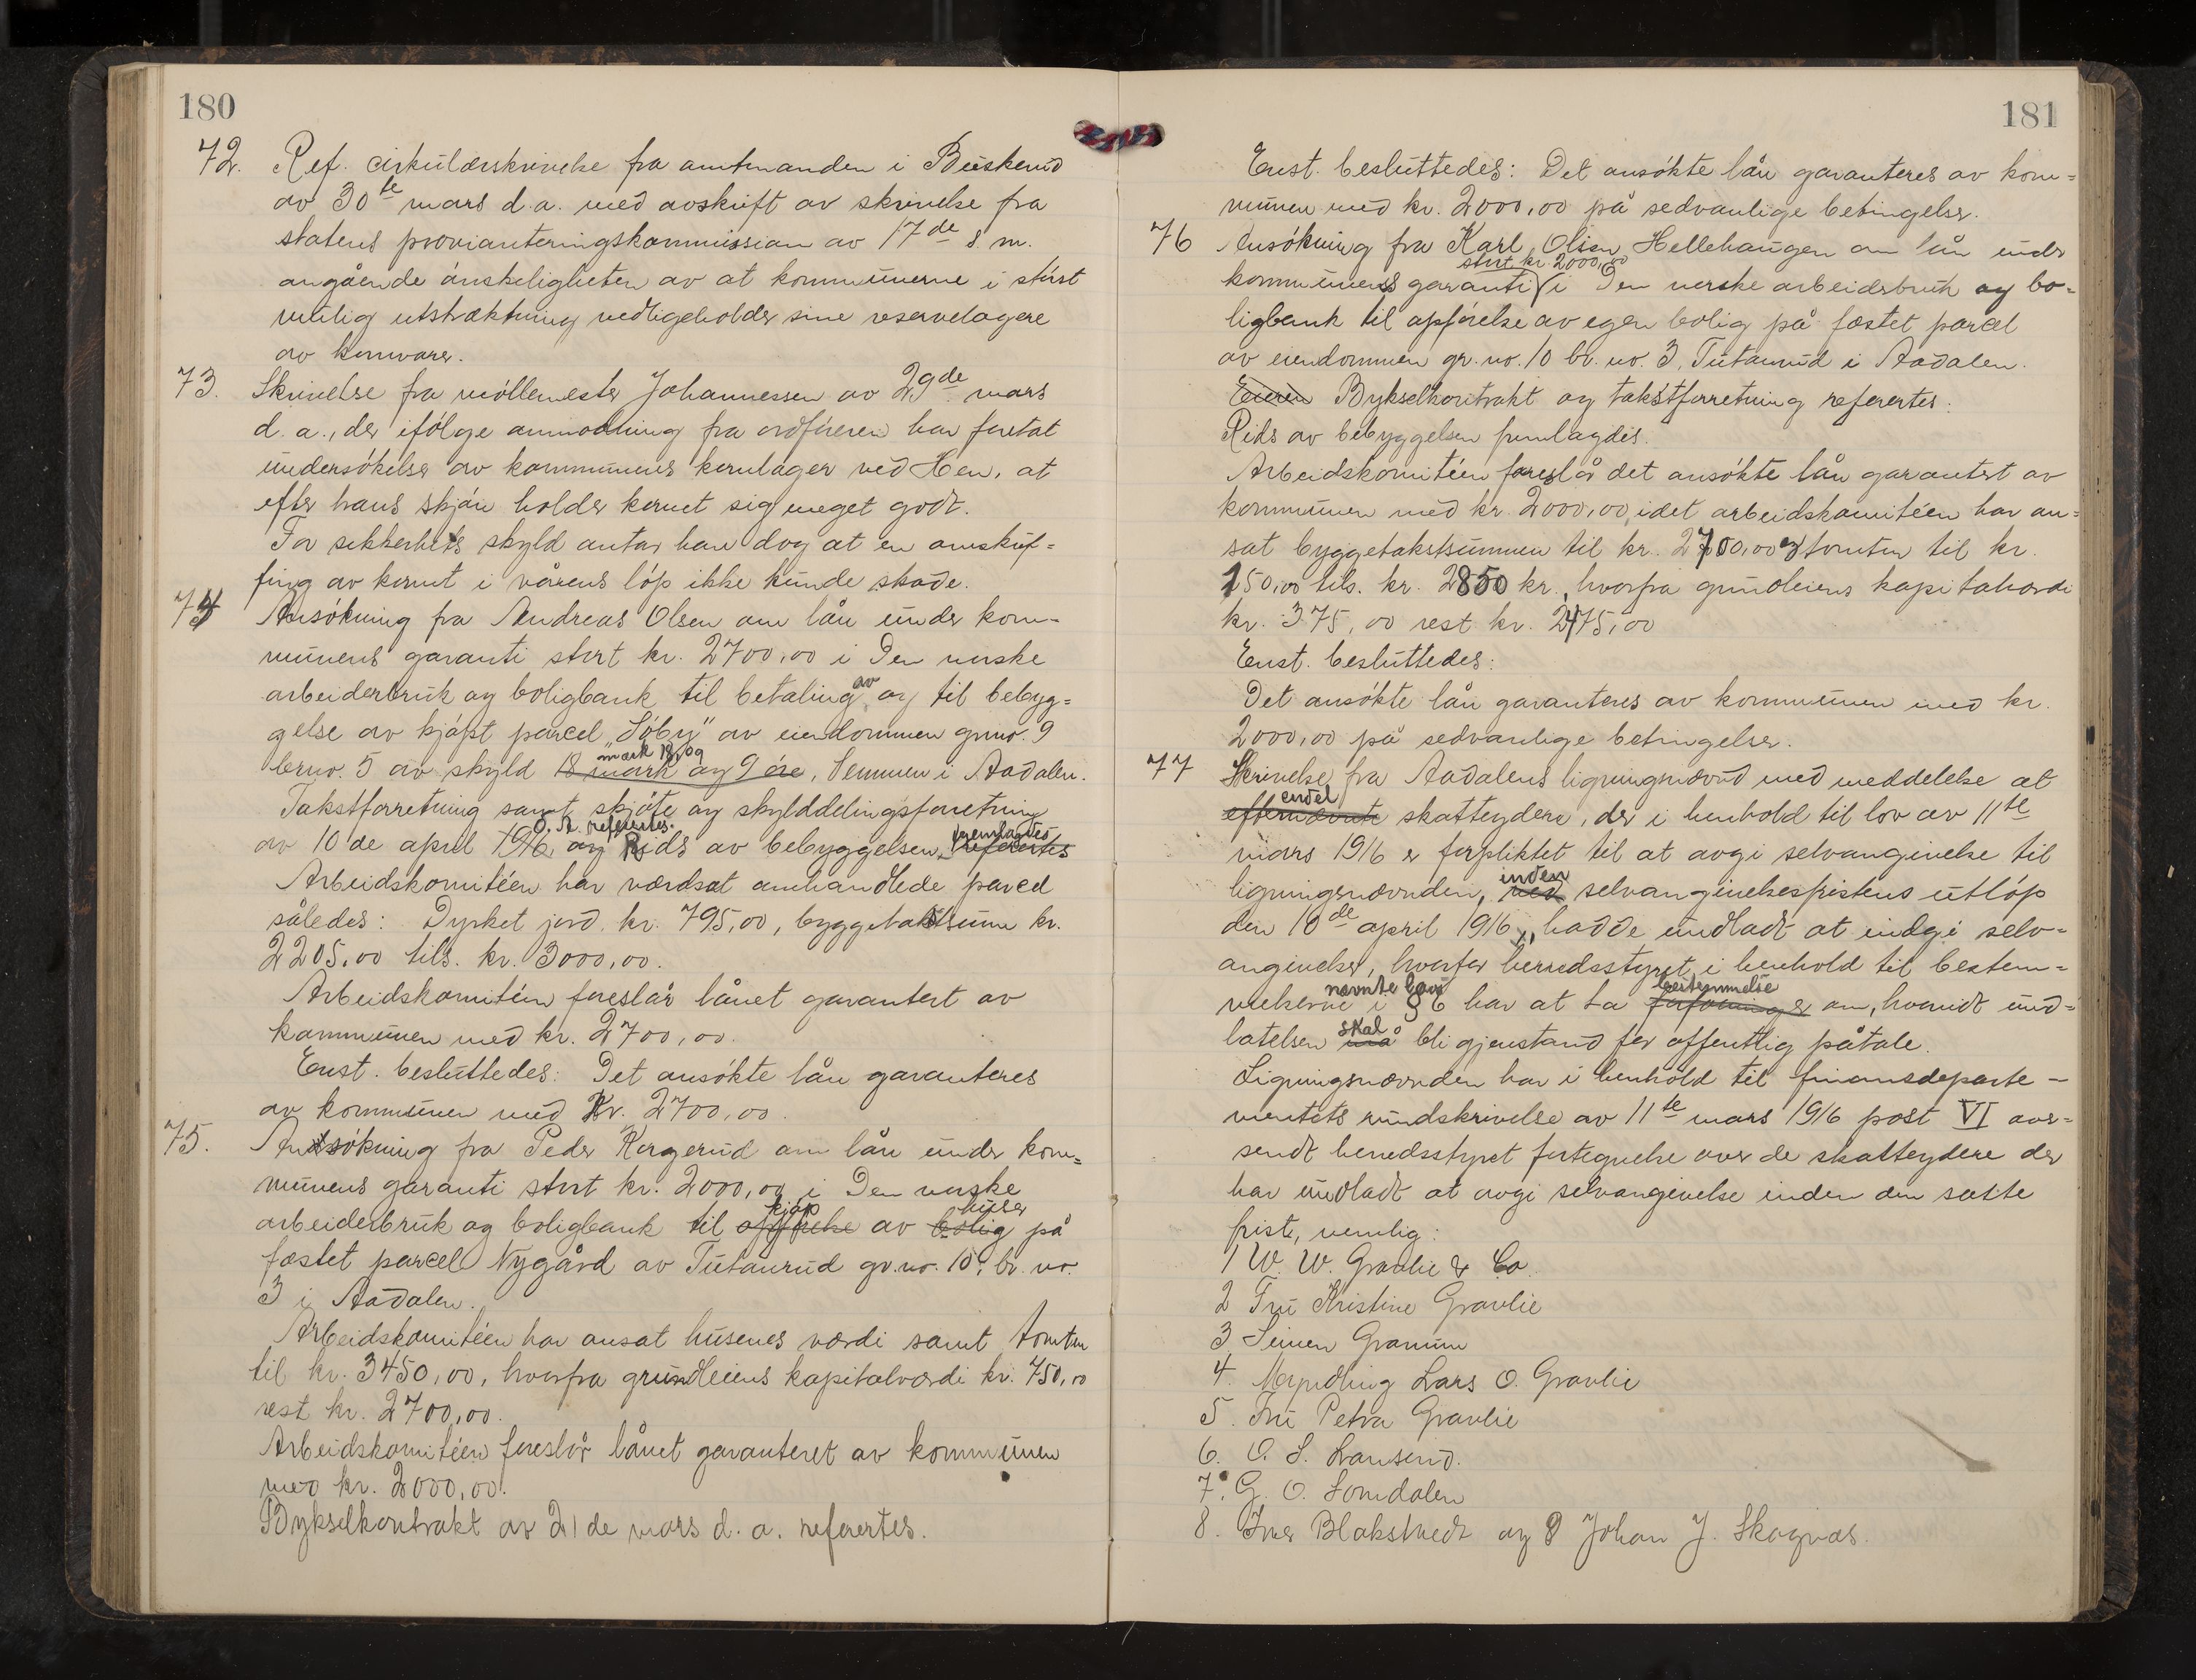 180
72. Ref. cirkulærskrivelse fra amtmanden i Buskerud
av 30te mars d.a. med avskrift av skrivelse fra
statens provianteringskommission av 17de s.m.
angående ønskeligheten av at kommunerne i størst
mulig utstrækning vedligeholder sine reservelagere
av kornvarer.
73. Skrivelse fra møllemester Johannessen av 29de mars
d.a., der ifølge anmodning fra ordføreren har foretat
undersøkelse av kommunens kornlager ved Hen, at
efter hans skjøn holder kornet sig meget godt.
For sikkerhets skyld antar han dog at en omskuf-
fing av kornet i vårens løp ikke kunde skade.
74 Ansøkning fra Andreas Olsen om lån under kom-
munens garanti stort kr. 2700,00 i Den norske
arbeiderbruk og boligbank til betaling av og til bebyg=
gelse av kjøpt parcel "Søby" av eiendommen grno. 9
mark 18,09
brno. 5 av skyld 18 mark og 9 øre, Semmen i Aadalen.
Takstforretning samt skjøte og skylddelingsforretning
O. A. refertes. fremlagdes
av 10de april 1916 og Rids av bebyggelsen refertes
Arbeidskomitéen har værdsat omhandlede parcel
således: Dyrket jord kr. 795,00, byggetakstsum kr.
2205,00 tils. kr. 3000,00.
Arbeidskomitéen foreslår lånet garantert av
kommunen med kr. 2700,00.
Enst. besluttedes: Det ansøkte lån garanteres
av kommunen med Kr. 2700,00.
75. Ansøkning fra Peder Korgerud om lån under kom=
munens garanti stort kr. 2000,00 i Den norske
kjøp huser
arbeiderbruk og boligbank til opførelse av bolig på
fæstet parcel Nygård av Tutanrud gr.no. 10, br. no.
3 i Aadalen.
Arbeidskomitéen har ansat husenes værdi samt tomten
til kr. 3450,00, hvorfra grundleiens kapitalværdi kr. 750,00
rest kr. 2700,00.
Arbeidskomitéen foreslår lånet garanteret av kommunen
med kr. 2000,00.
Bykselkontrakt av 21de mars d.a. referertes.
181
Enst. besluttedes: Det ansøkte lån garanteres av kom=
munen med kr. 2000,00 på sedvanlige betingelser.
76 Ansøkning fra Karl Olsen Hellehaugen om lån under
stort kr. 2000,00
kommunens garanti i Den norske arbeidsbruk og bo-
ligbank til opførelse av egen bolig på fæstet parcel
av eiendommen gr. no. 10 br. no. 3, Tutanrud i Aadalen.
Eieren Bykselkontrakt og takstforretning referertes.
Rids av bebyggelsen fremlagdes.
Arbeidskomitéen foreslår det ansøkte lån garantert av
kommunen med kr. 2000,00, idet arbeidskomitéen har an=
sat byggetakstsummen til kr. 2700,00 og tomten til kr.
150,00 tils. kr. 2850 kr., hvorfra grundleiens kapitalværdi
kr. 375,00 rest kr. 2475,00
Enst. besluttedes:
Det ansøkte lån garanteres av kommunen med kr.
2000,00 på sedvanlige betingelser.
77 Skrivelse fra Aadalens ligningsnævnd med meddelelse at
endel
efternævnte skatteydere, der i henhold til lov av 11te
mars 1916 er forpliktet til at avgi selvangivelse til
inden
ligningsnævnden, ved selvangivelsesfristens utløp
den 10de april 1916, hadde undladt at indgi selv-
angivelser, hvorfor herredsstyret i henhold til bestem=
nævnte lovs bestemmelse
melserne i § 6 har at ta forføining er om, hvorvidt und-
skal
latelsen må bli gjenstand for offentlig påtale.
Ligningsnævnden har i henhold til finansdeparte-
mentets rundskrivelse av 11te mars 1916 post VI over-
sendt herredsstyret fortegnelse over de skatteydere der
har undladt at avgi selvangivelse inden den satte
frist, nemlig:
1 W. W. Gravlie & Co.
2 Fru Kristine Gravlie
3 Simen Granum
4. Myndling Lars O. Gravlie
5. Fru Petra Gravlie
6. O. S.
7. G. O. Somdalen
8. Iver Blakstvedt og 9 Johan J. Skagnæs.